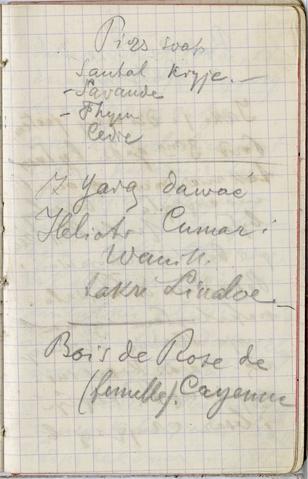 Piers soap
Santal kryje. —
- Lavande
- Thym
Cedre
z Yarą dawać
Heliotr Cumar i
Wanil.
także Linaloe —
Bois de Rose de
(femelle). Cayenne